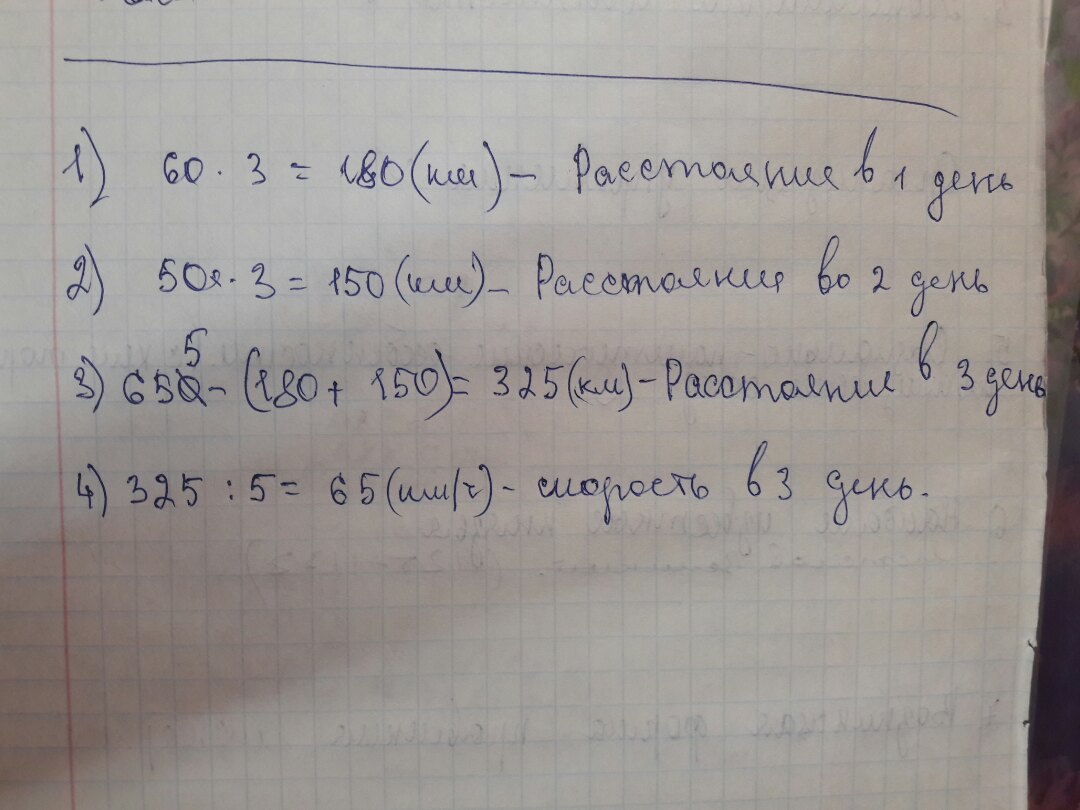 1) 60 · 3 = 180 (км) – Расстояние в 1 день
2) 50 · 3 = 150 (км) – Расстояние во 2 день
3) 655 – (180 + 150) = 325 (км) – Расстояние в 3 день
4) 325 : 5 = 65 (км/ч) – скорость в 3 день.